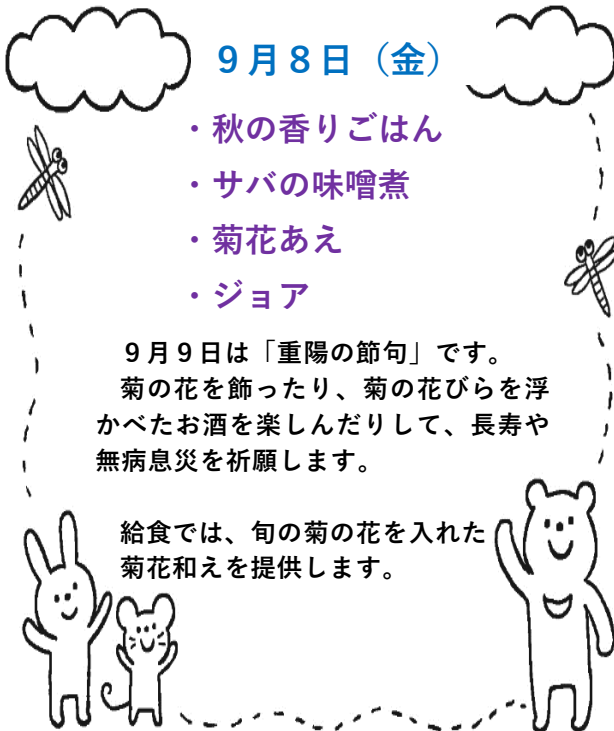 ９月８日（金）
・秋の香りごはん
・サバの味噌煮
・菊花あえ
・ジョア
９月９日は「重陽の節句」です。
菊の花を飾ったり、菊の花びらを浮
かべたお酒を楽しんだりして、長寿や
無病息災を祈願します。
給食では、旬の菊の花を入れた
菊花和えを提供します。